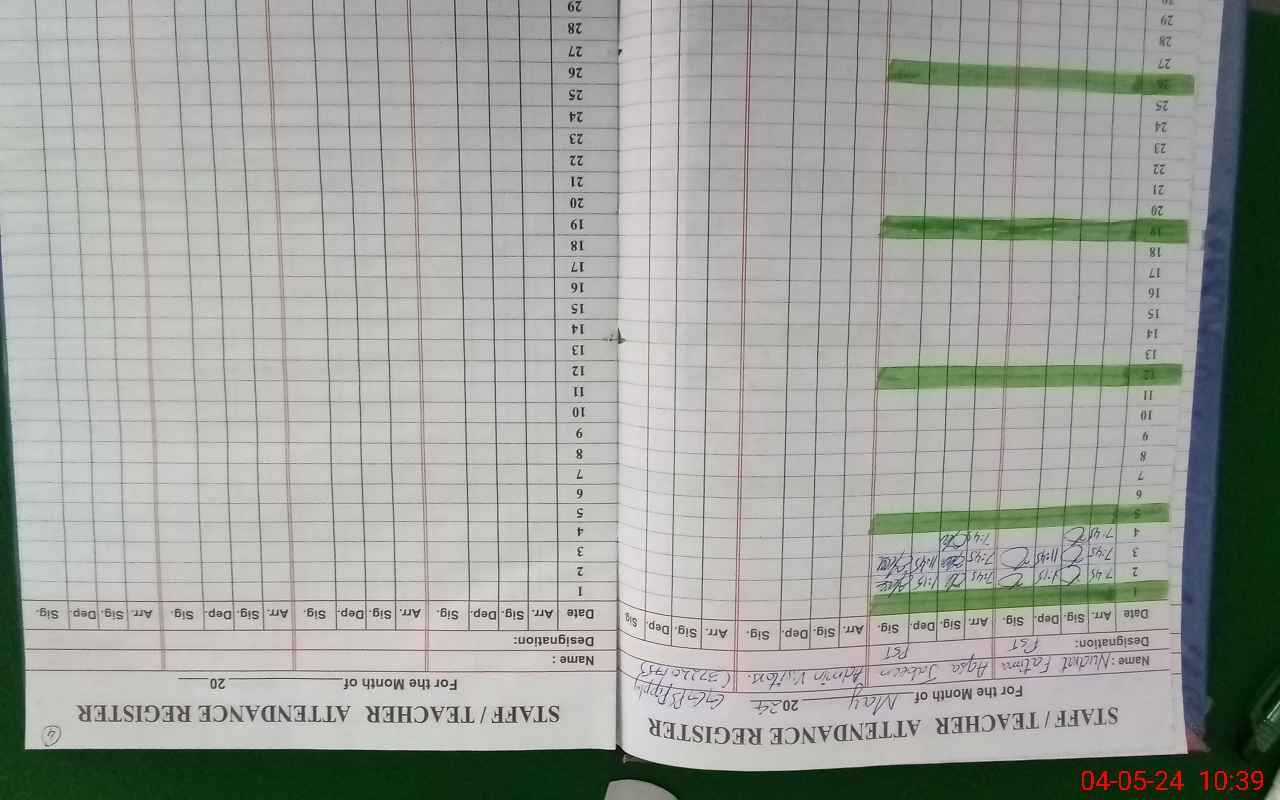 STAFF / TEACHER ATTENDANCE REGISTER
For the Month of May 2024
GGPS
Name: Nudrat Fatima Aqsa Jabeen Admin Visitors.
Designation: PST PST
Date Arr. Sig. Dep. Sig. Arr. Sig. Dep. Sig. Arr. Sig. Dep. Sig. Arr. Sig. Dep. Sig
1
2 7:45 1:15 7:45 1:15
3 7:45 11:45 7:45 11:45
4 7:45 7:45
5
6
7
8
9
10
11
12
13
14
15
16
17
18
19
20
21
22
23
24
25
26
27
28
29
STAFF / TEACHER ATTENDANCE REGISTER
4
For the Month of 20
Name :
Designation:
Date Arr. Sig. Dep. Sig. Arr. Sig. Dep. Sig. Arr. Sig. Dep. Sig. Arr. Sig. Dep. Sig.
1
2
3
4
5
6
7
8
9
10
11
12
13
14
15
16
17
18
19
20
21
22
23
24
25
26
27
28
29
04-05-24 10:39